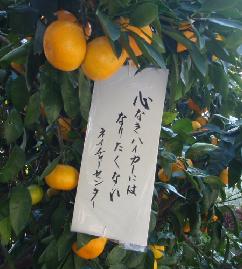 心なきハイカーには
なりたくない
ネイチャーセンター